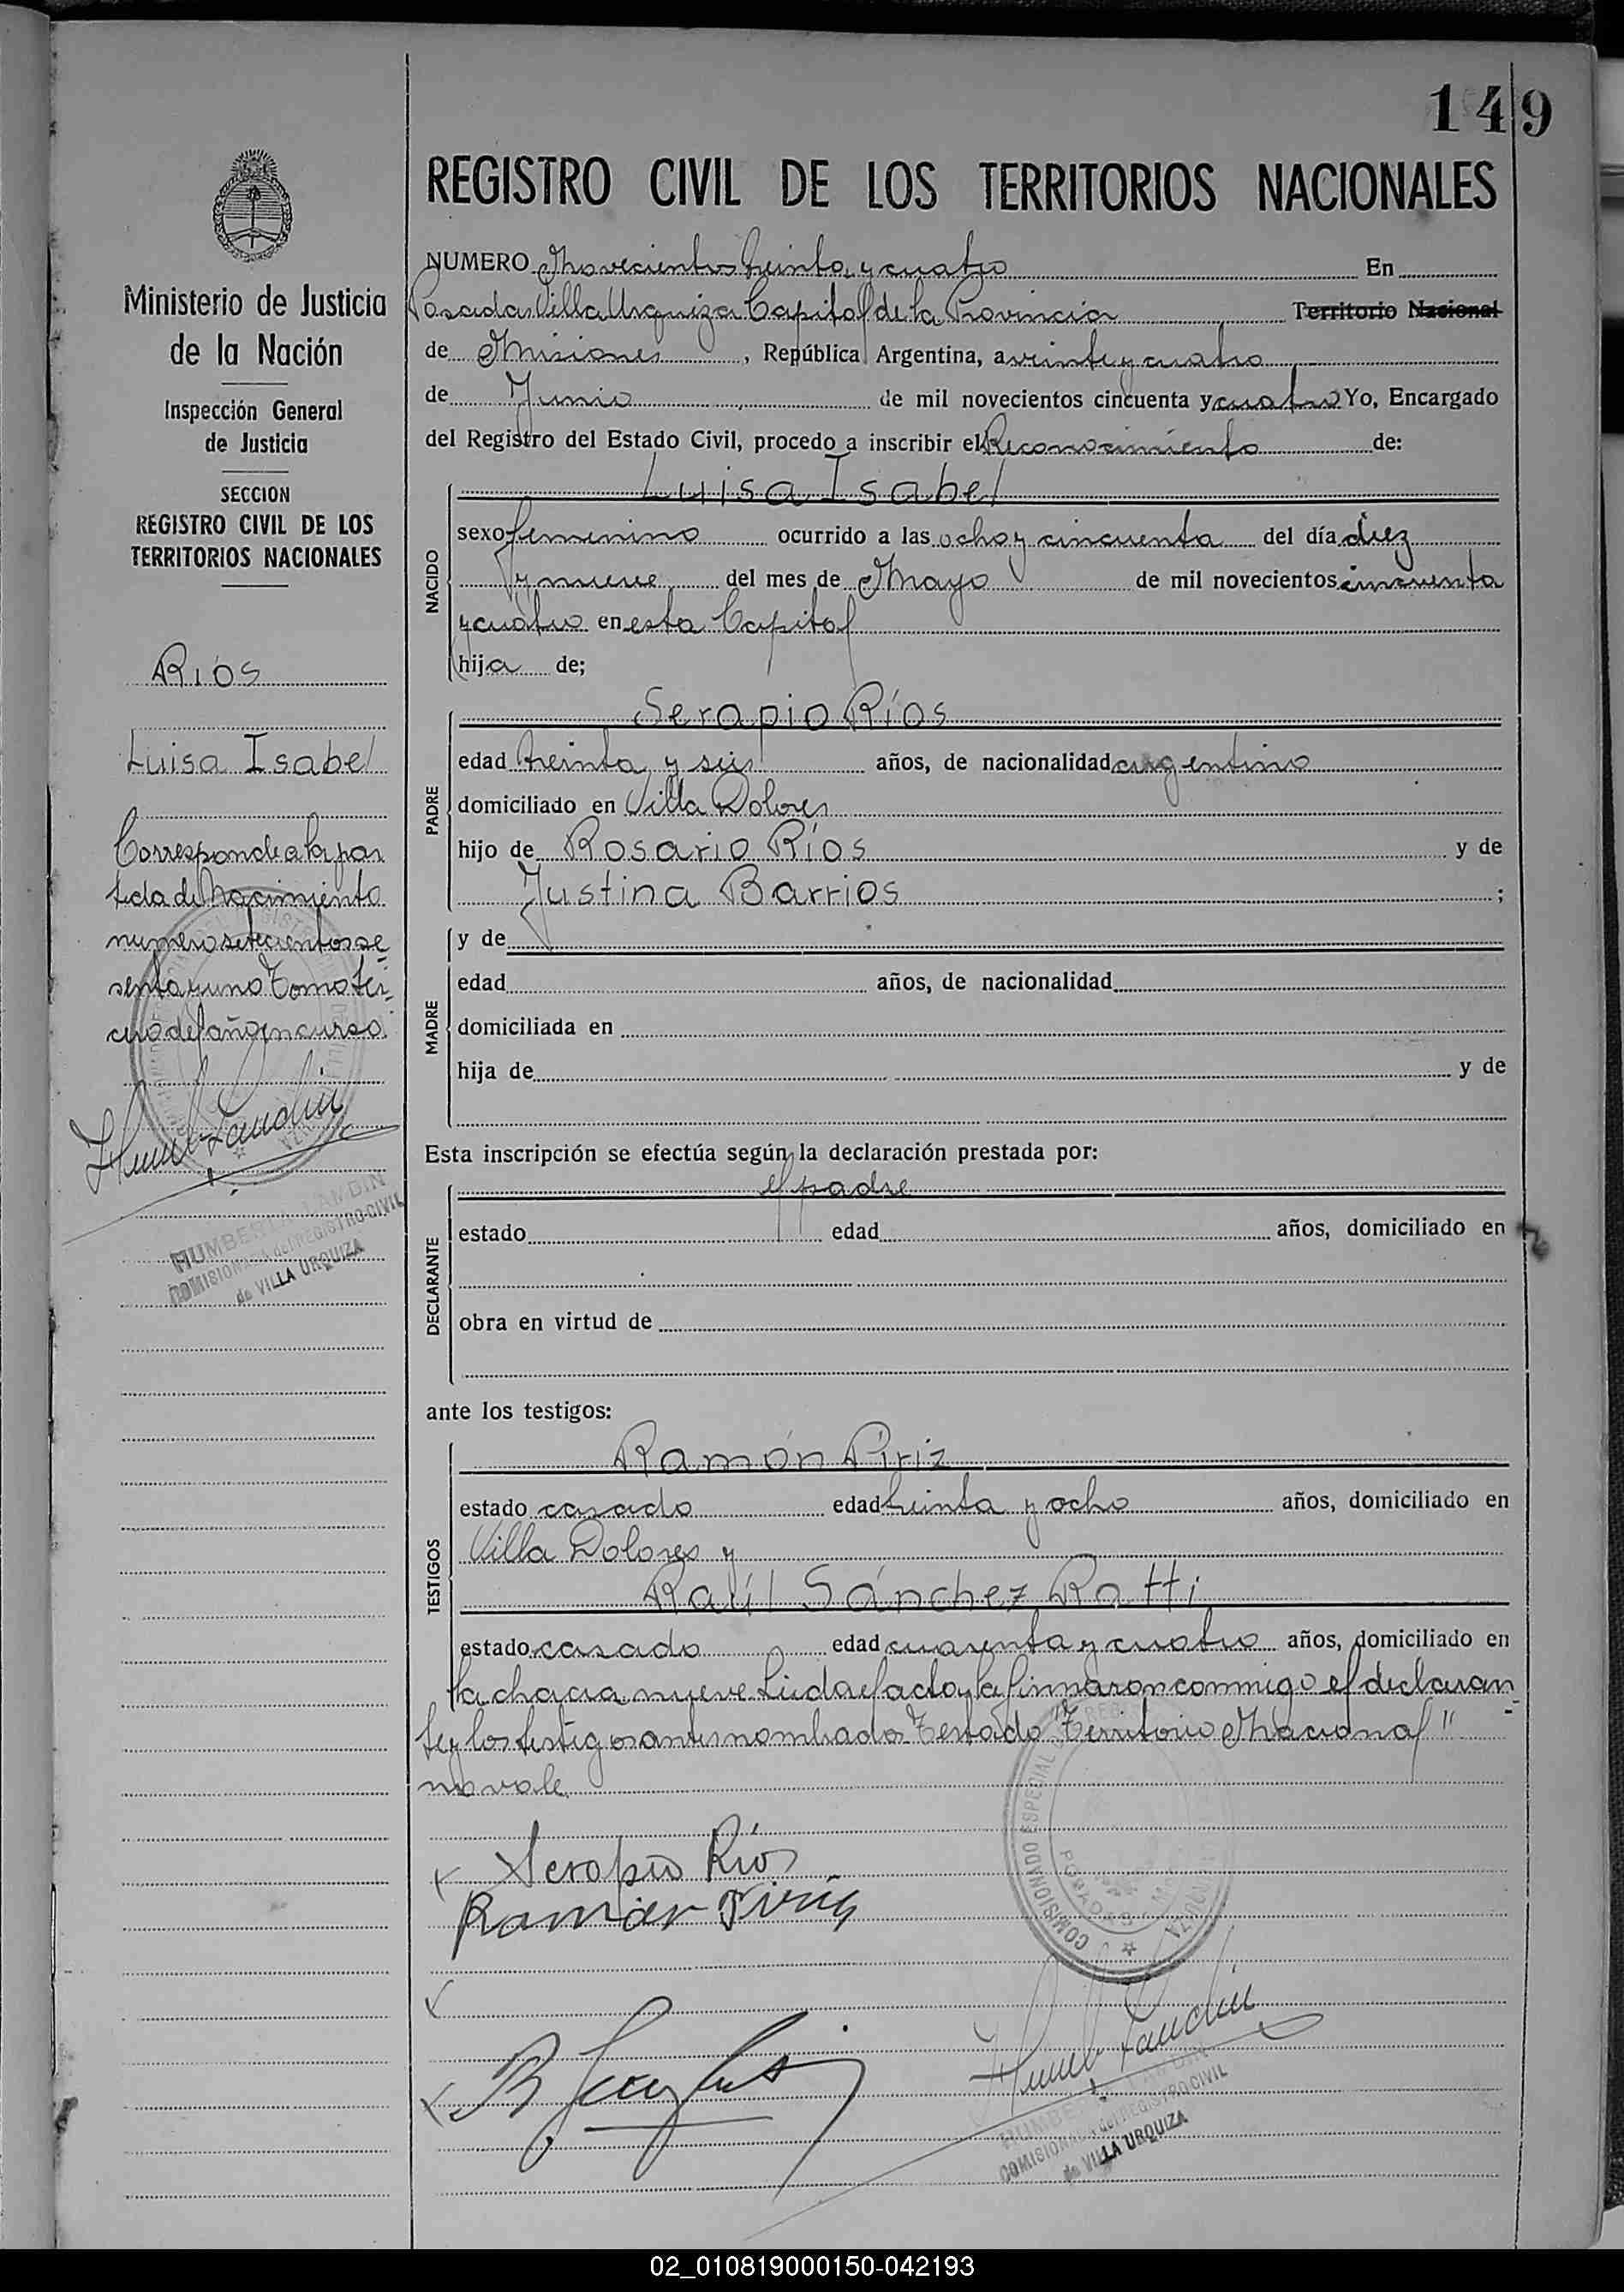 149
REGISTRO CIVIL DE LOS TERRITORIOS NACIONALES
Ministerio de Justicia
de la Nación
Inspección General
de Justicia
SECCION
REGISTRO CIVIL DE LOS
TERRITORIOS NACIONALES
Ríos
Luisa Isabel
Corresponde a la par
tida de Nacimiento
numero setecientos se
senta y uno Tomo ter
cero del año en curso.
HUMBERTA LANDIN
COMISIONADA del REGISTRO CIVIL
de VILLA URQUIZA
NUMERO Novecientos treinta y cuatro En
Posadas Villa Urquiza Capital de la Provincia Territorio Nacional
de Misiones, República Argentina, a veinte y cuatro
de Junio de mil novecientos cincuenta y cuatro Yo, Encargado
del Registro del Estado Civil, procedo a inscribir el Reconocimiento de:
NACIDO
Luisa Isabel
sexo femenino ocurrido a las ocho y cincuenta del día diez
y nueve del mes de Mayo de mil novecientos cincuenta
y cuatro en esta Capital
hija de;
PADRE
Serapio Ríos
edad treinta y seis años, de nacionalidad argentino
domiciliado en Villa Dolores
hijo de Rosario Ríos y de
Justina Barrios ;
MADRE
y de
edad años, de nacionalidad
domiciliada en
hija de y de
Esta inscripción se efectúa según la declaración prestada por:
DECLARANTE
el padre
estado edad años, domiciliado en
obra en virtud de
ante los testigos:
TESTIGOS
Ramón Piriz
estado casado edad treinta y ocho años, domiciliado en
Villa Dolores y
Raúl Sánchez Ratti
estado casado edad cuarenta y cuatro años, domiciliado en
la chacra nueve. Leida el acta, la firmaron conmigo el declaran
te y los testigos antes nombrados. Testado "Territorio Nacional"
no vale.
Serapio Ríos
Ramón Piriz
COMISIONADO ESPECIAL
POSADAS
HUMBERTA LANDIN
COMISIONADA del REGISTRO CIVIL
de VILLA URQUIZA
02_010819000150-042193